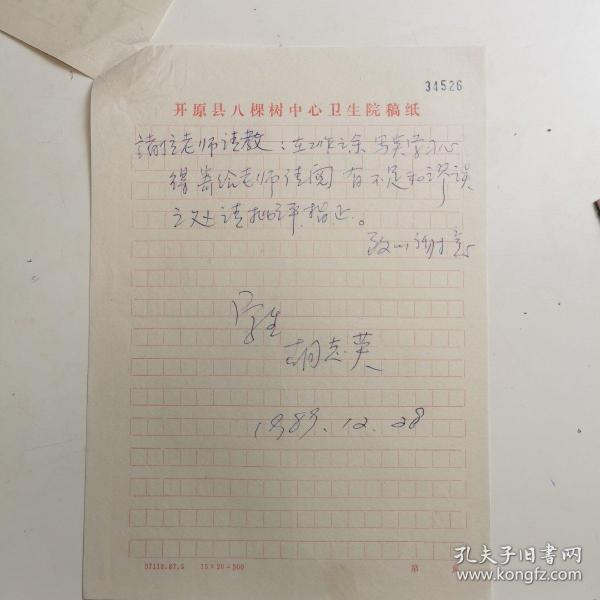 34526
开原县八棵树中心卫生院稿纸
諸位老师请教：在工作之余写点学习心
得寄给老师请阅 有不足和謬误
之处请批评指正。
致以谢意
学生
胡志英
1989.12.28
57118.87.6 15×20=300
第 页
孔夫子旧书网
www.kongfz.com